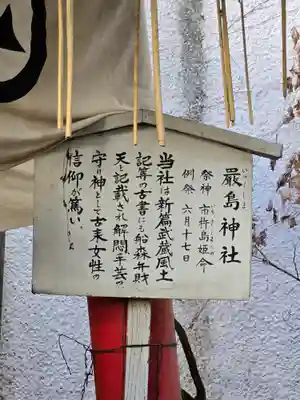 嚴島神社
祭神 市杵島姫命
例祭 六月十七日
当社は新篇武蔵風土
記等の古書にも船森弁財
天と記載され解悶手芸の
守り神として古来女性の
信仰が篤い。